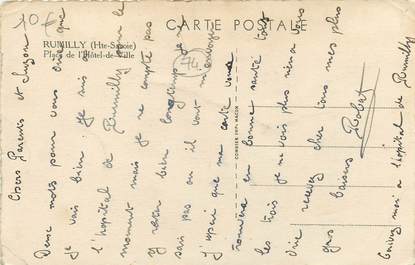 CARTE POSTALE
RUMILLY (Hte-Savoie)
Place de l'Hôtel-de-Ville
10 F
74
COMBIER IMP. MACON
Chers Parents et Suzon
Deux mots pour vous dire que
je vais bien. Je suis
l'hopital de Rumilly pour le
moment mais je ne compte pas
y rester bien longtemps je ne
sais pas ou il vont m'envoyer
J'esperé que ma carte vous
trouvera en bonne santé tous
les trois je ne vois plus rien a vous
dire recevez cher tous mes plus
gros baisers
Robert
Ecrivez moi a l'hopital de Rumilly